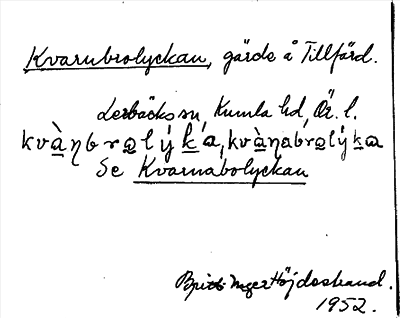 Kvarnbrolyckan, gärde å Tillfärd.
Lerbäcks sn, Kumla hd, Ör. l.
kvàṉbro̱lýḵa, kvàṉabro̱lýḵa
Se Kvarnabolyckan
Britt Inger Höjdestrand.
1952.